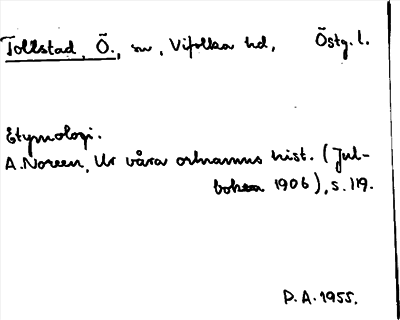 Tollstad, Ö., sn, Vifolka hd, Östg. l.
Etymologi.
A. Noreen, Ur våra ortnamns hist. (Jul-
boken 1906), s. 119.
P.A. 1955.